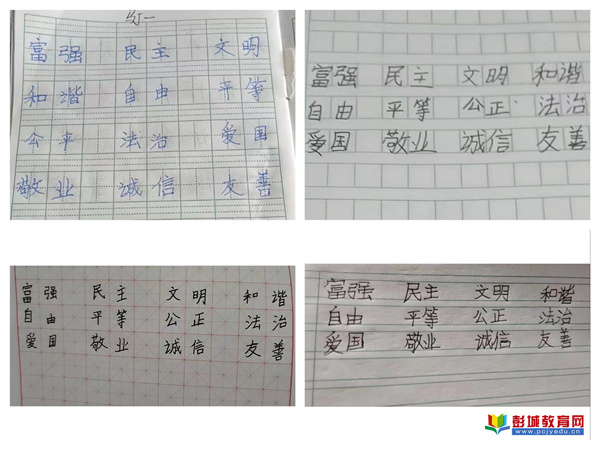 富强 民主 文明
和谐 自由 平等
公平 法治 爱国
敬业 诚信 友善
富强 民主 文明 和谐
自由 平等 公正 法治
爱国 敬业 诚信 友善
富强 民主 文明 和谐
自由 平等 公正 法治
爱国 敬业 诚信 友善
富强 民主 文明 和谐
自由 平等 公正 法治
爱国 敬业 诚信 友善
彭城教育网
www.pcjyedu.cn